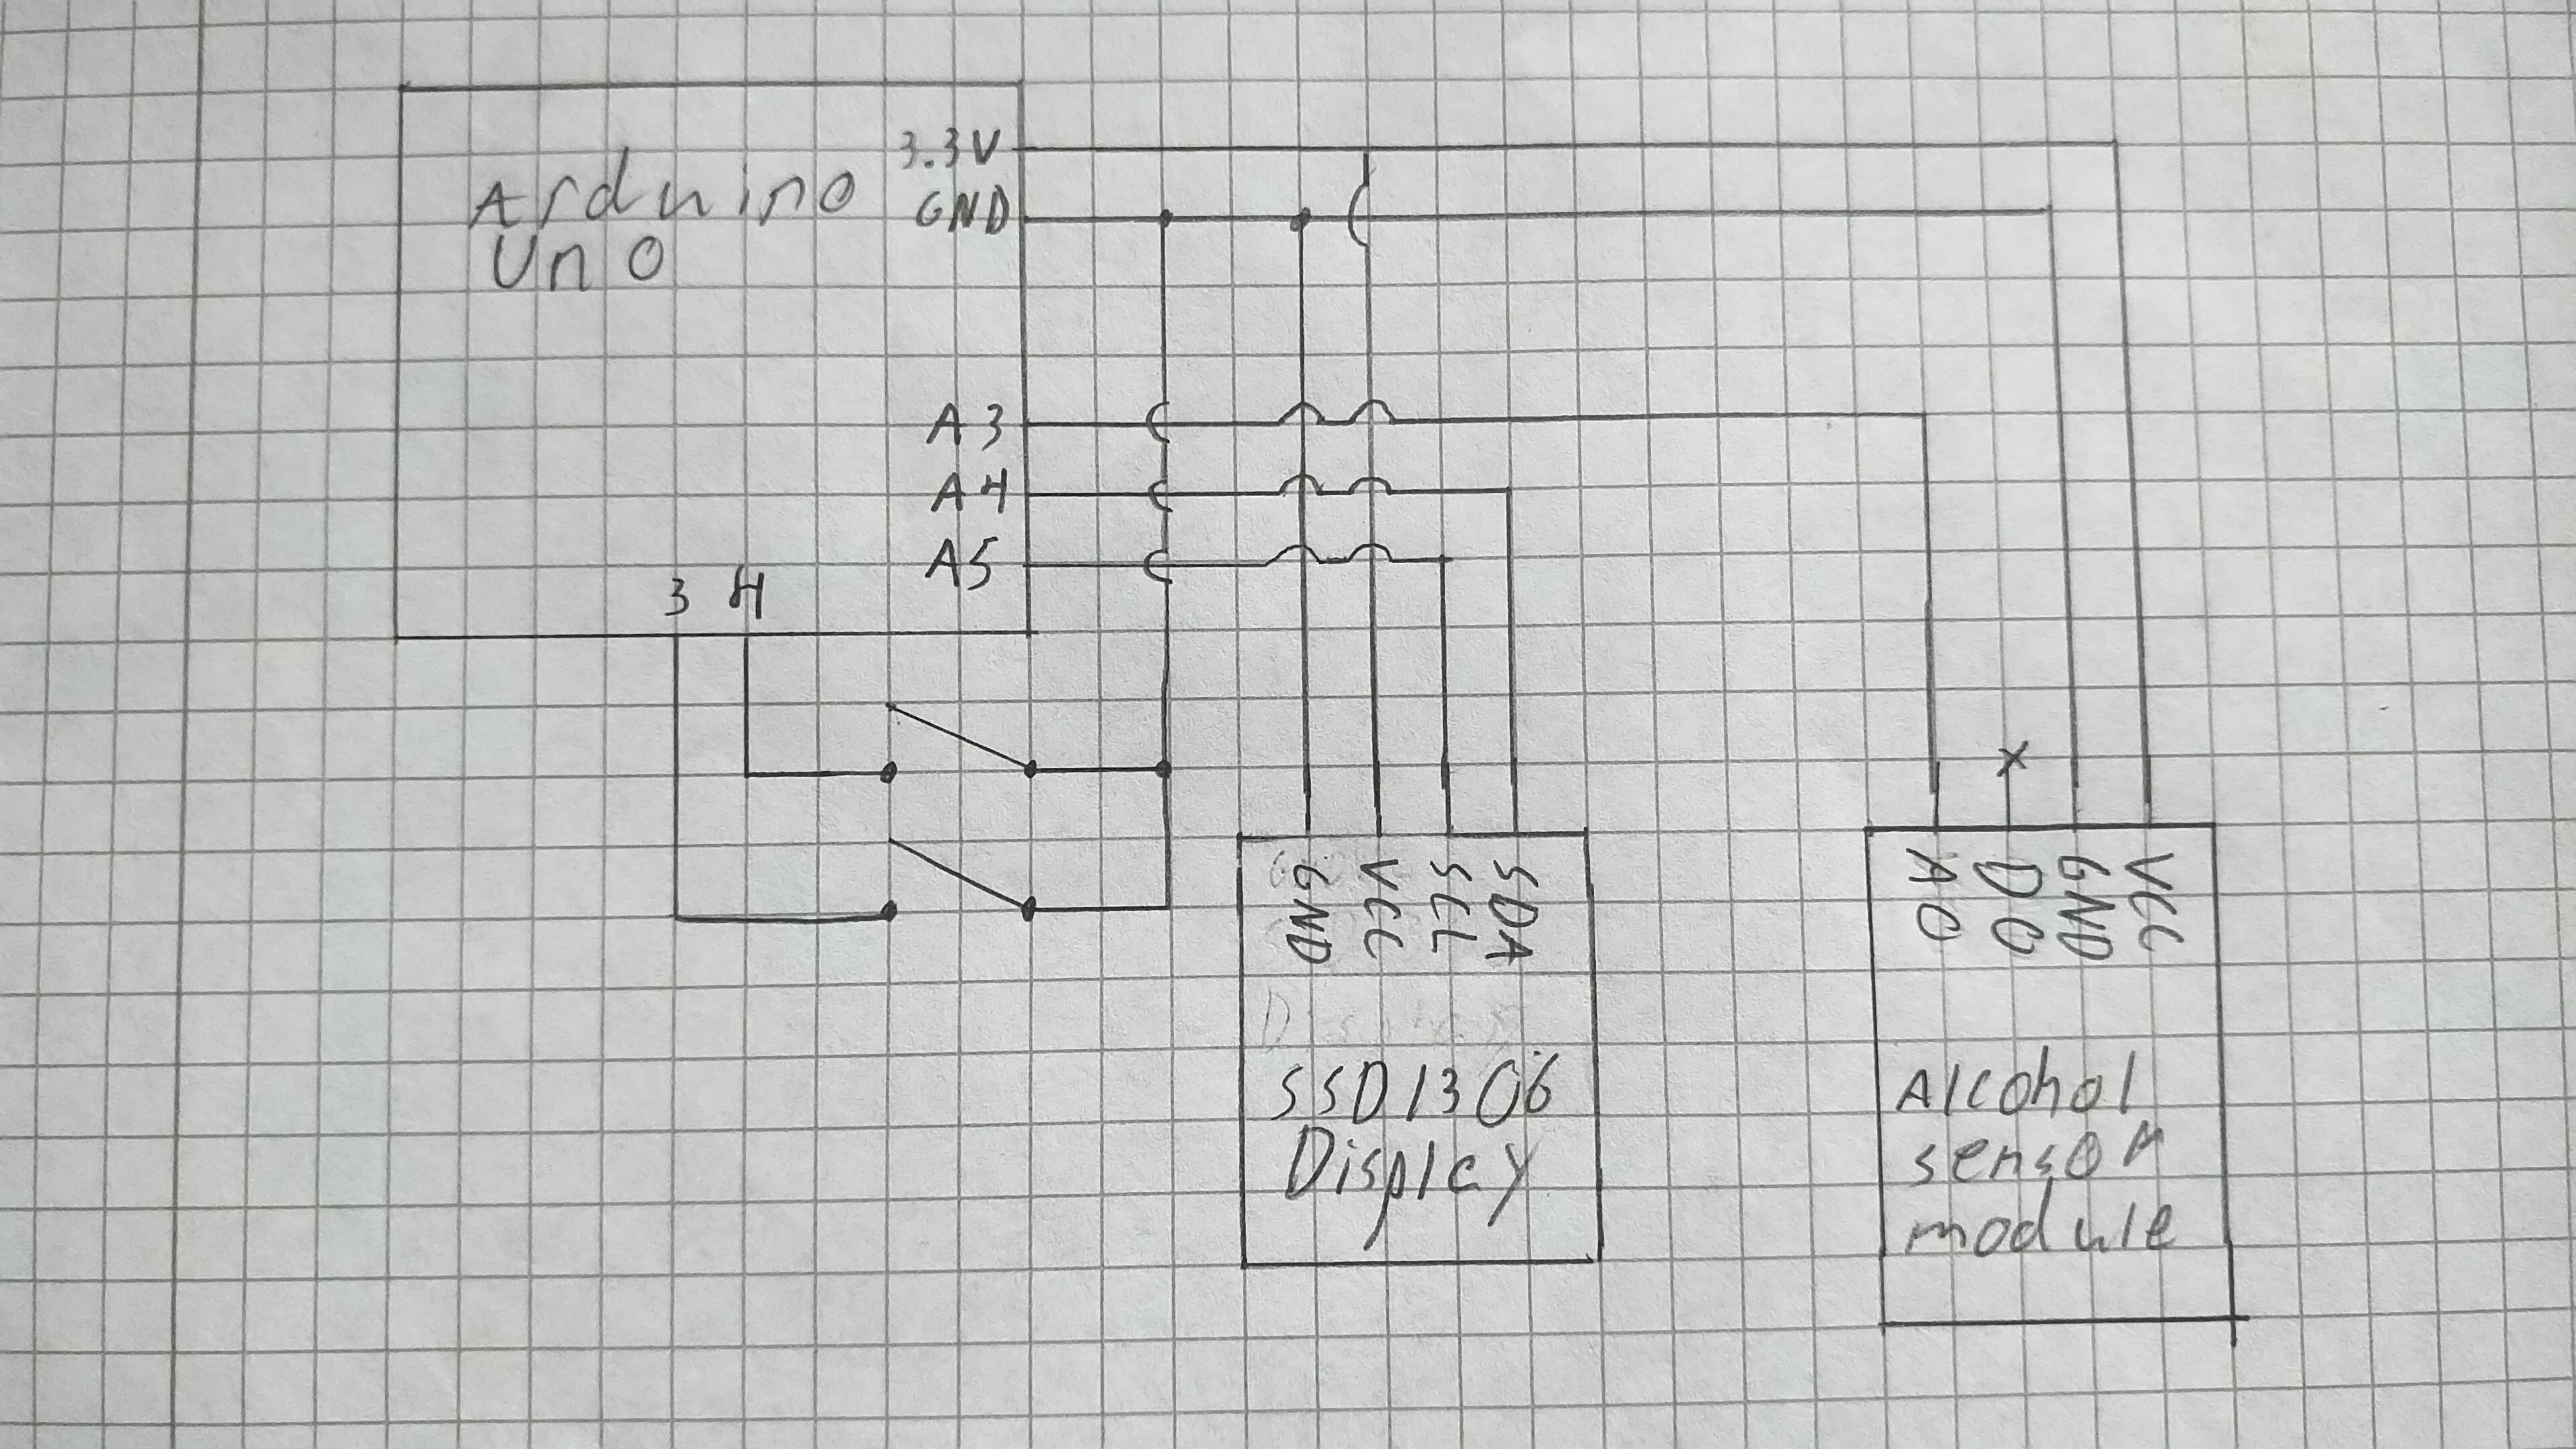 3.3V
Arduino
Uno
GND
A3
A4
A5
3 4
GND
VCC
SCL
SDA
SSD1306
Display
AO
DO
GND
VCC
Alcohol
sensor
module